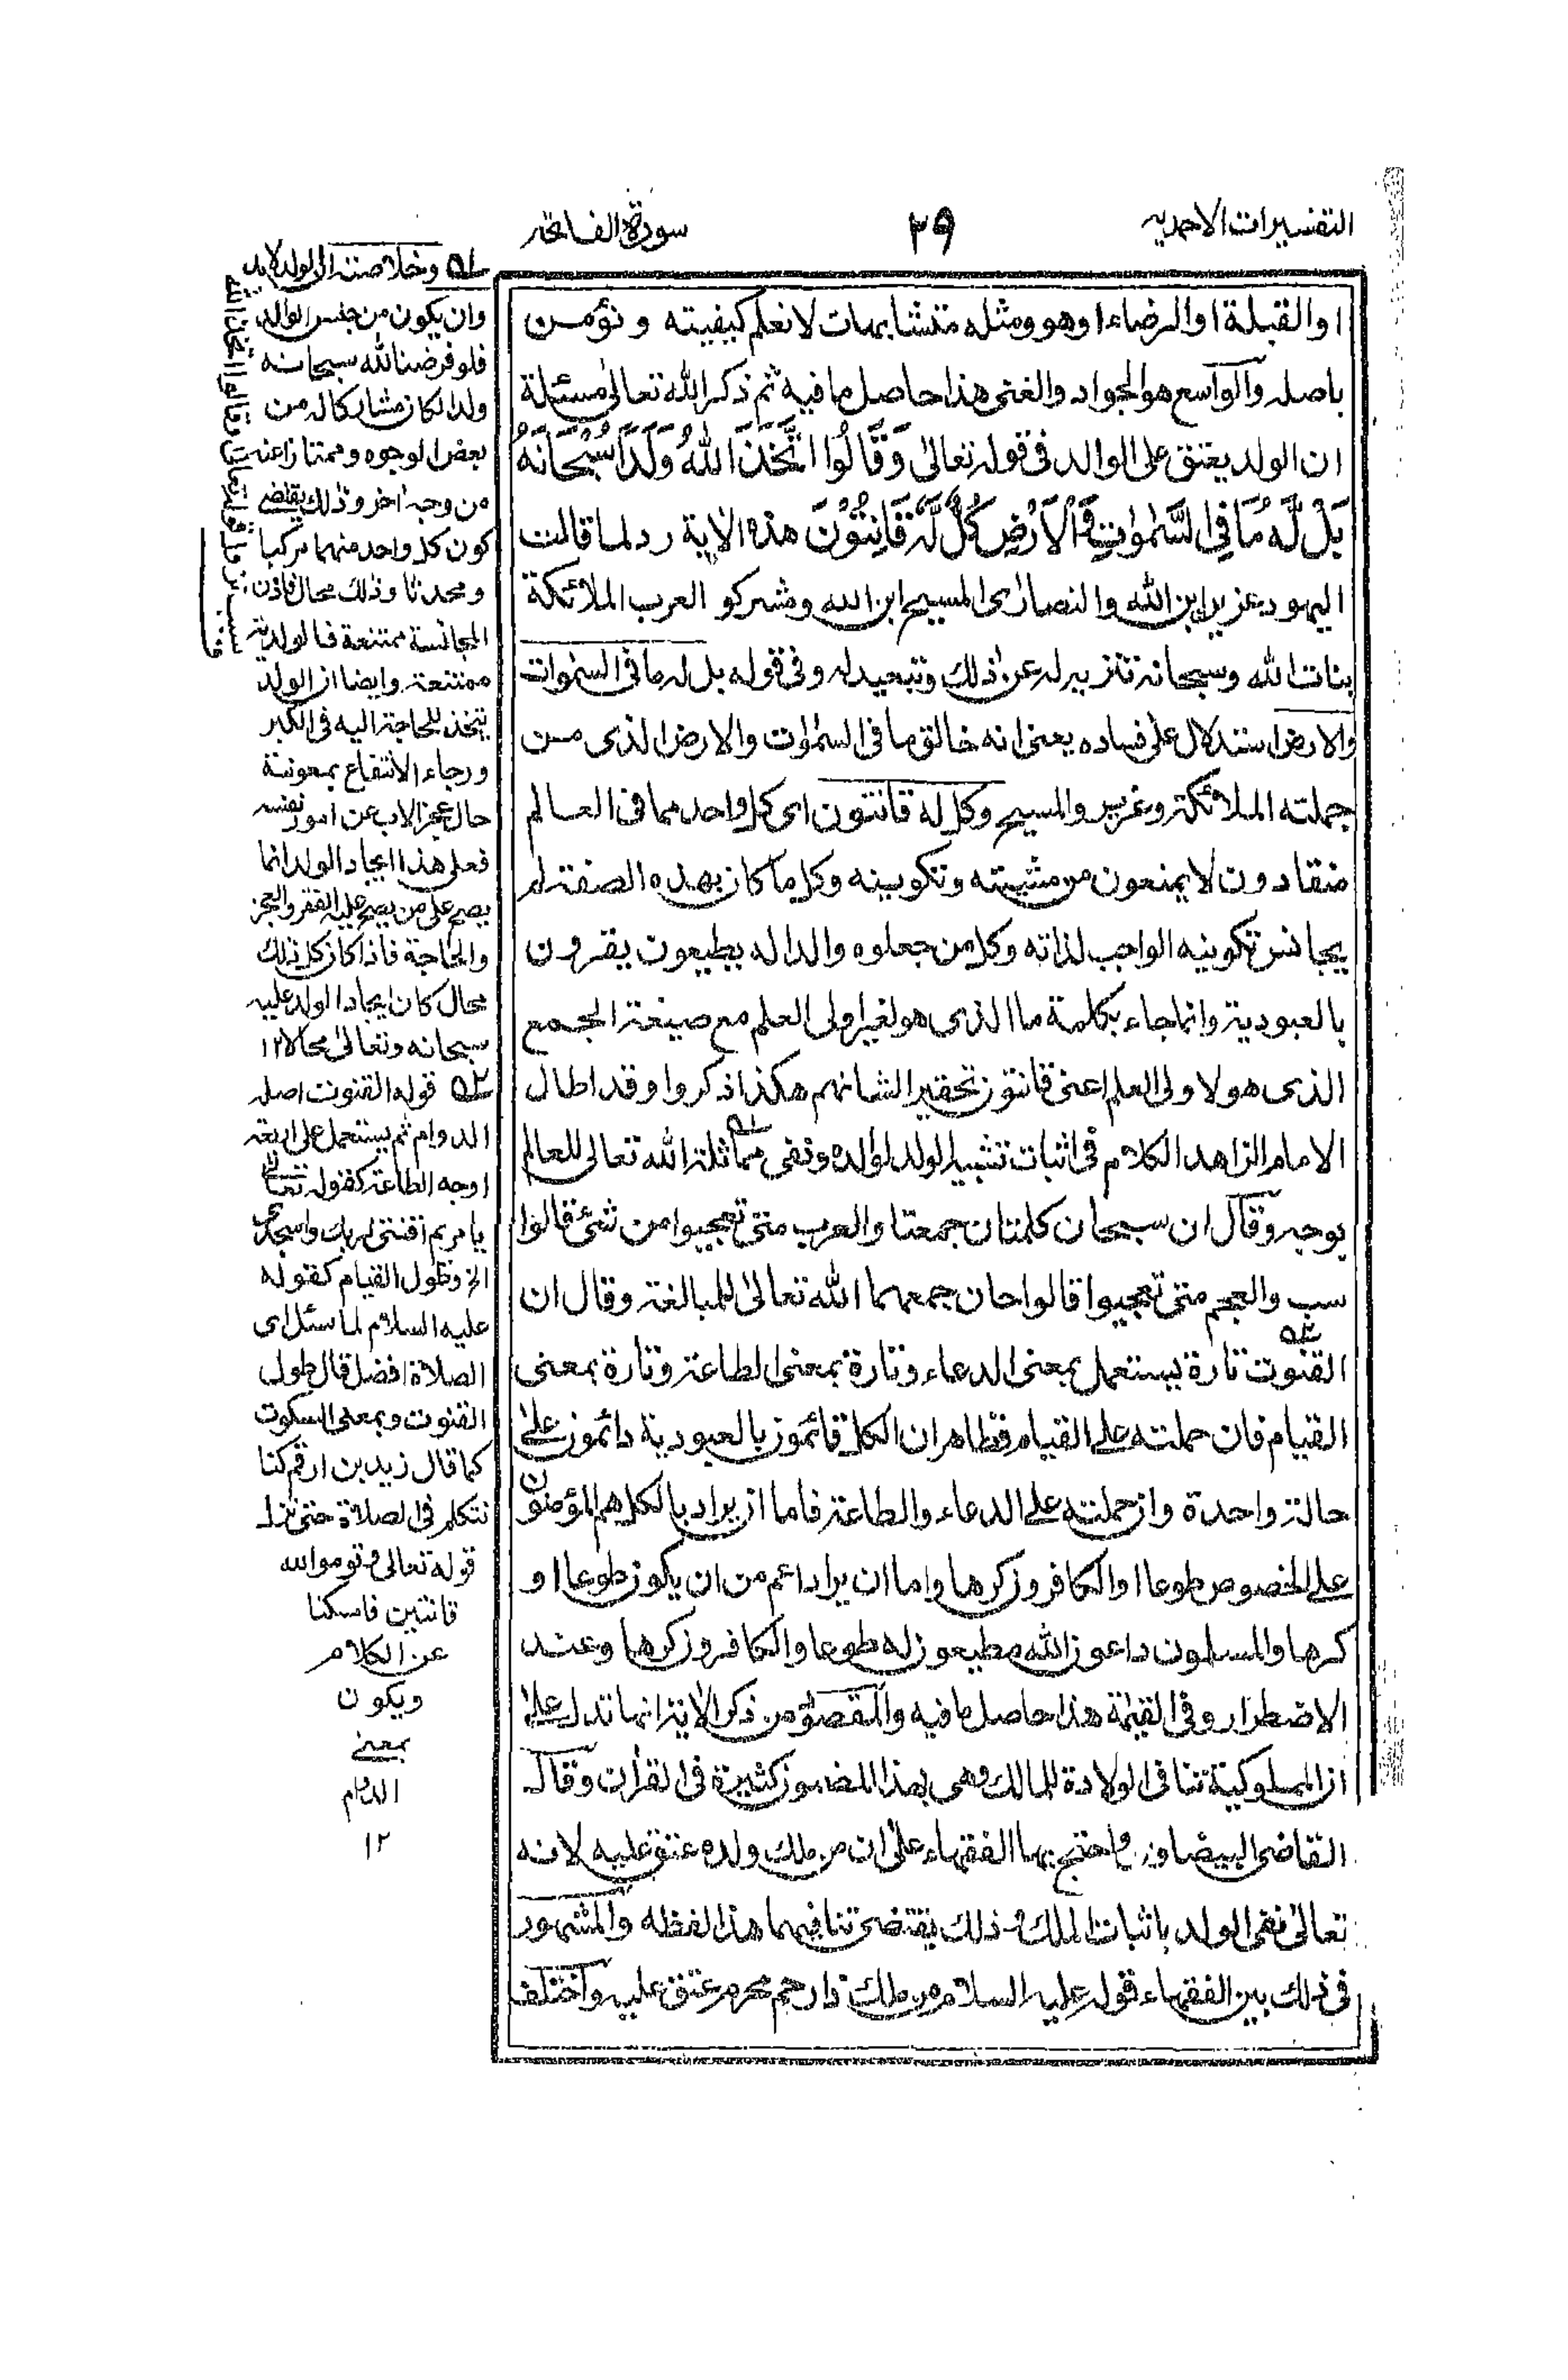 التفسيرات الاحمديه
٢٩
سورة الفاتحة
او القبلة او الرضاء او هو ومثله متشابهات لا نعلم كيفيته و نؤمن
باصله والواسع هو الجواد والغنى هذا حاصل ما فيه ثم ذكر الله تعالىٰ مسئلة
ان الولد يعتق على الوالد فى قوله تعالىٰ وَقَالُوا اتَّخَذَ اللهُ وَلَدًا سُبْحَانَهُ
بَلْ لَّهُ مَا فِي السَّمٰوٰتِ وَالْاَرْضِ كُلٌّ لَّهٗ قَانِتُوْنَ هذه الاٰية رد لما قالت
اليهود عزير ابن الله والنصارٰى المسيح ابن الله ومشركو العرب الملائكة
بنات الله وسبحانه تنزيه له عن ذلك وتبعيد له وفى قوله بل له ما فى السمٰوات
والارض استدلال على فساده يعنى انه خالق ما فى السمٰوٰت والارض الذى من
جملته الملائكة وعزير والمسيح وكل له قانتون اى كل واحد مما فى العالم
منقادون لا يمنعون من مشيته وتكوينه وكل ما كان بهذه الصفة لم
يجانس تكوينه الواجب لذاته وكل من جعلوه والدا له يطيعون يقرون
بالعبودية وانما جاء بكلمة ما الذى هو لغير اولى العلم مع صيغة الجمع
الذى هو لاولى العلم اعنى قانتون تحقيرا لشانهم هكذا ذكروا وقد اطال
الامام الزاهد الكلام فى اثبات تشبيه الولد لوالده ونفى مماثلة الله تعالى للعالم
بوجه وقال ان سبحان كلمتان جمعتا والعرب متى تعجبوا من شئ قالوا
سب والعجم متى تعجبوا قالوا حان جمعهما الله تعالىٰ للمبالغة وقال ان
القنوت تارة يستعمل بمعنى الدعاء وتارة بمعنى الطاعة وتارة بمعنى
القيام فان حملته على القيام فظاهر ان الكل قائمون بالعبودية دائمون علىٰ
حالة واحدة وان حملته على الدعاء والطاعة فاما ان يراد بالكل هم المؤمنون
على الخصوص طوعا او الكافرون كرها واما ان يراد اعم من ان يكون طوعا او
كرها والمسلمون داعون الله مطيعون له طوعا والكافرون كرها وعند
الاضطرار وفى القيٰمة هذا حاصل ما فيه والمقصود من ذكر الاٰية انها تدل علىٰ
ان المملوكية تنافى الولادة للمالك وهى بهذا المضمون كثيرة فى القراٰن وقال
القاضى البيضاوى واحتج بها الفقهاء علىٰ ان من ملك ولده عتق عليه لانه
تعالىٰ نفى الولد باثبات الملك وذلك يقتضى تنافيهما هذا لفظه والمشهور
فى ذلك بين الفقهاء قوله عليه السلام من ملك ذا رحم محرم عتق عليه واختلف
١ه وخلاصته ان الولد لا بد
وان يكون من جنس الوالد
فلو فرضنا لله سبحانه
ولدا لكان مشاركا له من
بعض الوجوه وممتازا عنه
من وجه اٰخر وذلك يقتضى
كون كل واحد منهما مركبا
ومحدثا وذلك محال فاذن
المجانسة ممتنعة فالولدية
ممتنعة وايضا ان الولد
يتخذ للحاجة اليه فى الكبر
ورجاء الانتفاع بمعونته
حال عجز الاب عن امور نفسه
فعلى هذا ايجاد الولد انما
يصح على من يصح عليه الفقر والعجز
والحاجة فاذا كان كل ذلك
محال كان ايجاد الولد عليه
سبحانه وتعالىٰ محالا ١٢
٢ه قوله القنوت اصله
الدوام ثم يستعمل على اربعة
اوجه الطاعة كقوله تعالىٰ
يا مريم اقنتى لربك واسجدى
الخ وطول القيام كقوله
عليه السلام لما سئل اى
الصلاة افضل قال طول
القنوت وبمعنى السكوت
كما قال زيد بن ارقم كنا
نتكلم فى الصلاة حتى نزل
قوله تعالىٰ وقوموا لله
قانتين فامسكنا
عن الكلام
ويكون
بمعنى
الدوام
١٢